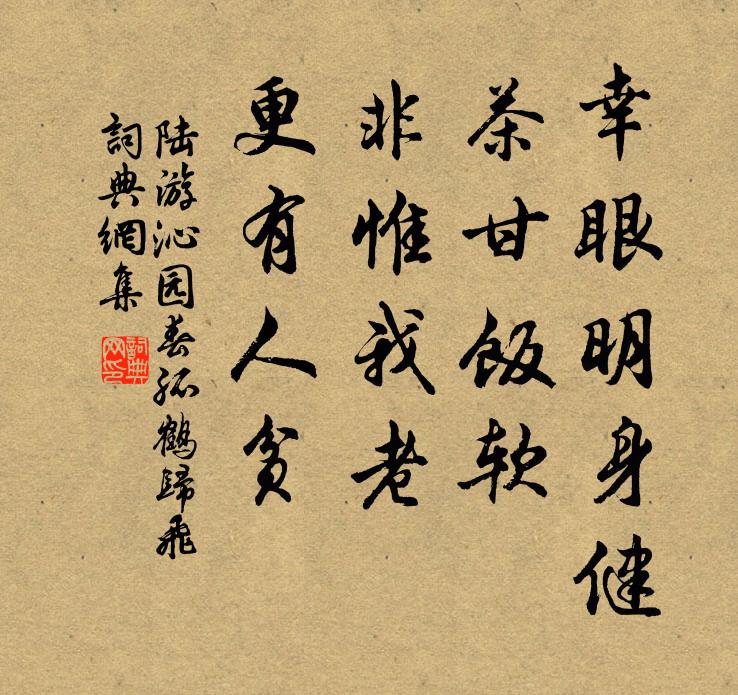 幸眼明身健
茶甘饭软
非惟我老
更有人贫
陆游沁园春孤鹤歸飛
詞典網集
詞典网印